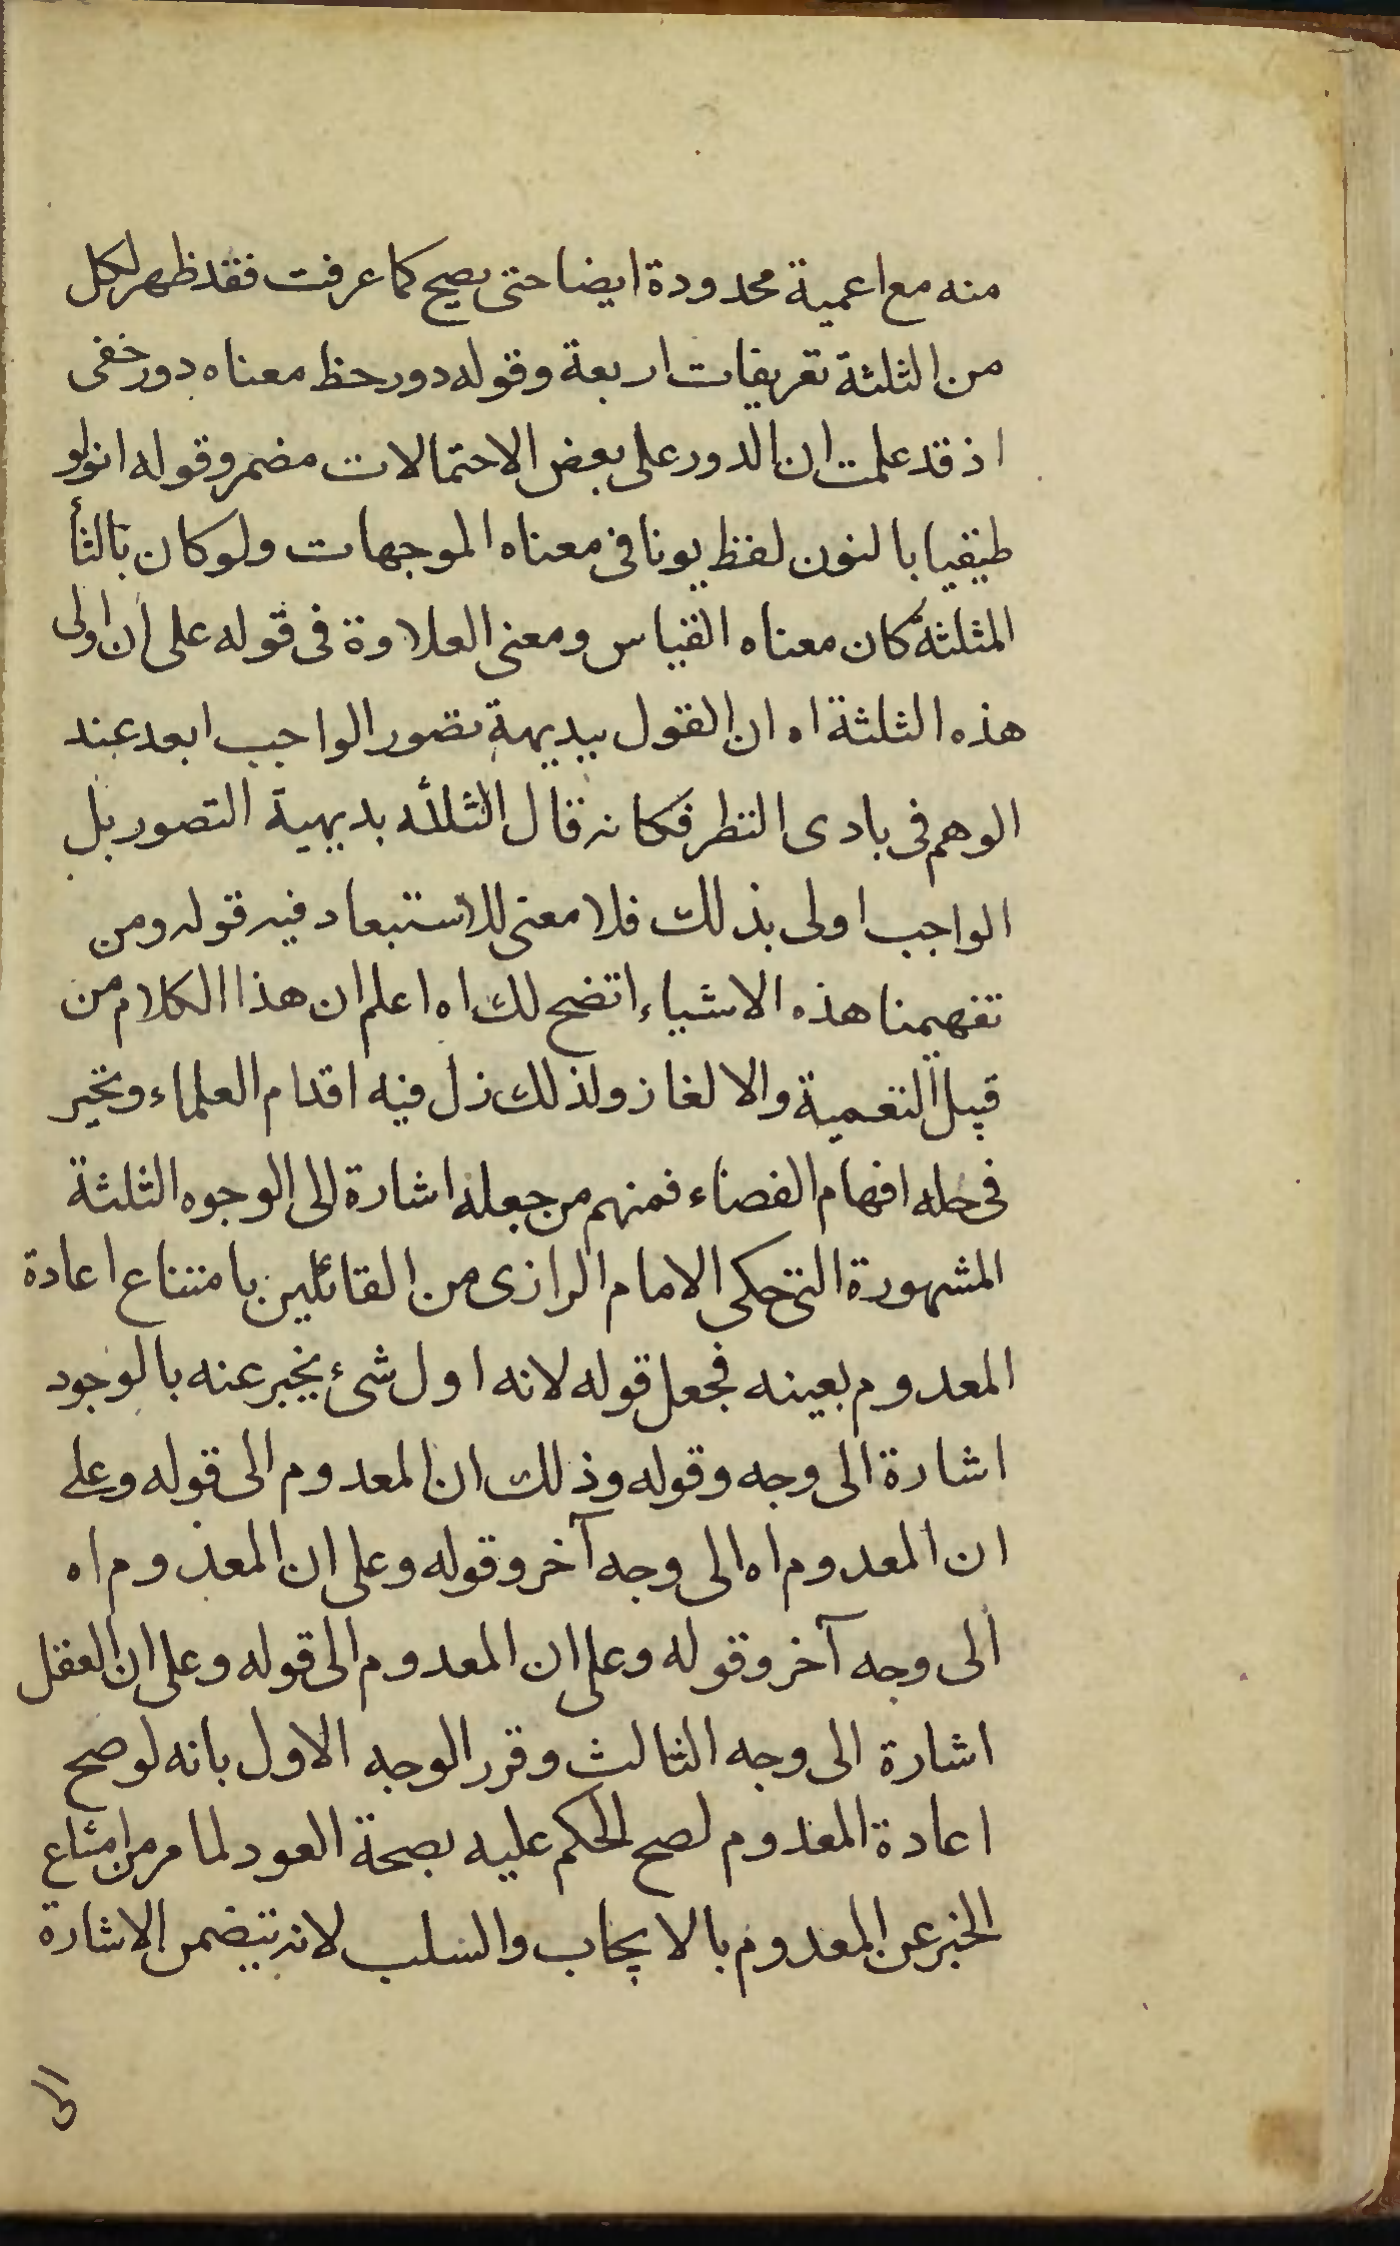 منه مع اعمية محدودة ايضا حتى يصح كما عرفت فقد ظهر لكل
من الثلثة تعريفات اربعة وقوله دور حظ معناه دور خفى
اذ قد علمت ان الدور على بعض الاحتمالات مضمر وقوله انولو
طيقيا بالنون لفظ يونانى معناه الموجهات ولو كان بالثأ
المثلثة كان معناه القياس ومعنى العلاوة فى قوله على ان اولى
هذه الثلثة اه ان القول ببديهة تصور الواجب ابعد عند
الوهم فى بادى النظر فكانه قال الثلثه بديهية التصور بل
الواجب اولى بذلك فلا معنى للاستبعاد فيه قوله ومن
تفهيمنا هذه الاشياء اتضح لك اه اعلم ان هذا الكلام من
قبيل التعمية والالغاز ولذلك زل فيه اقدام العلماء وتحير
فى حله افهام الفضاء فمنهم من جعله اشارة الى الوجوه الثلثة
المشهورة التى حكى الامام الرازى من القائلين بامتناع اعادة
المعدوم بعينه فجعل قوله لانه اول شئ يخبر عنه بالوجود
اشارة الى وجه وقوله وذلك ان المعدوم الى قوله وعلى
ان المعدوم اه الى وجه آخر وقوله وعلى ان المعدوم اه
الى وجه آخر وقوله وعلى ان المعدوم الى قوله وعلى ان العقل
اشارة الى وجه الثالث وقرر الوجه الاول بانه لو صح
اعادة المعدوم لصح الحكم عليه بصحة العود لما مر من امتناع
الخبر عن المعدوم بالايجاب والسلب لانه يتضمن الاشارة
الى